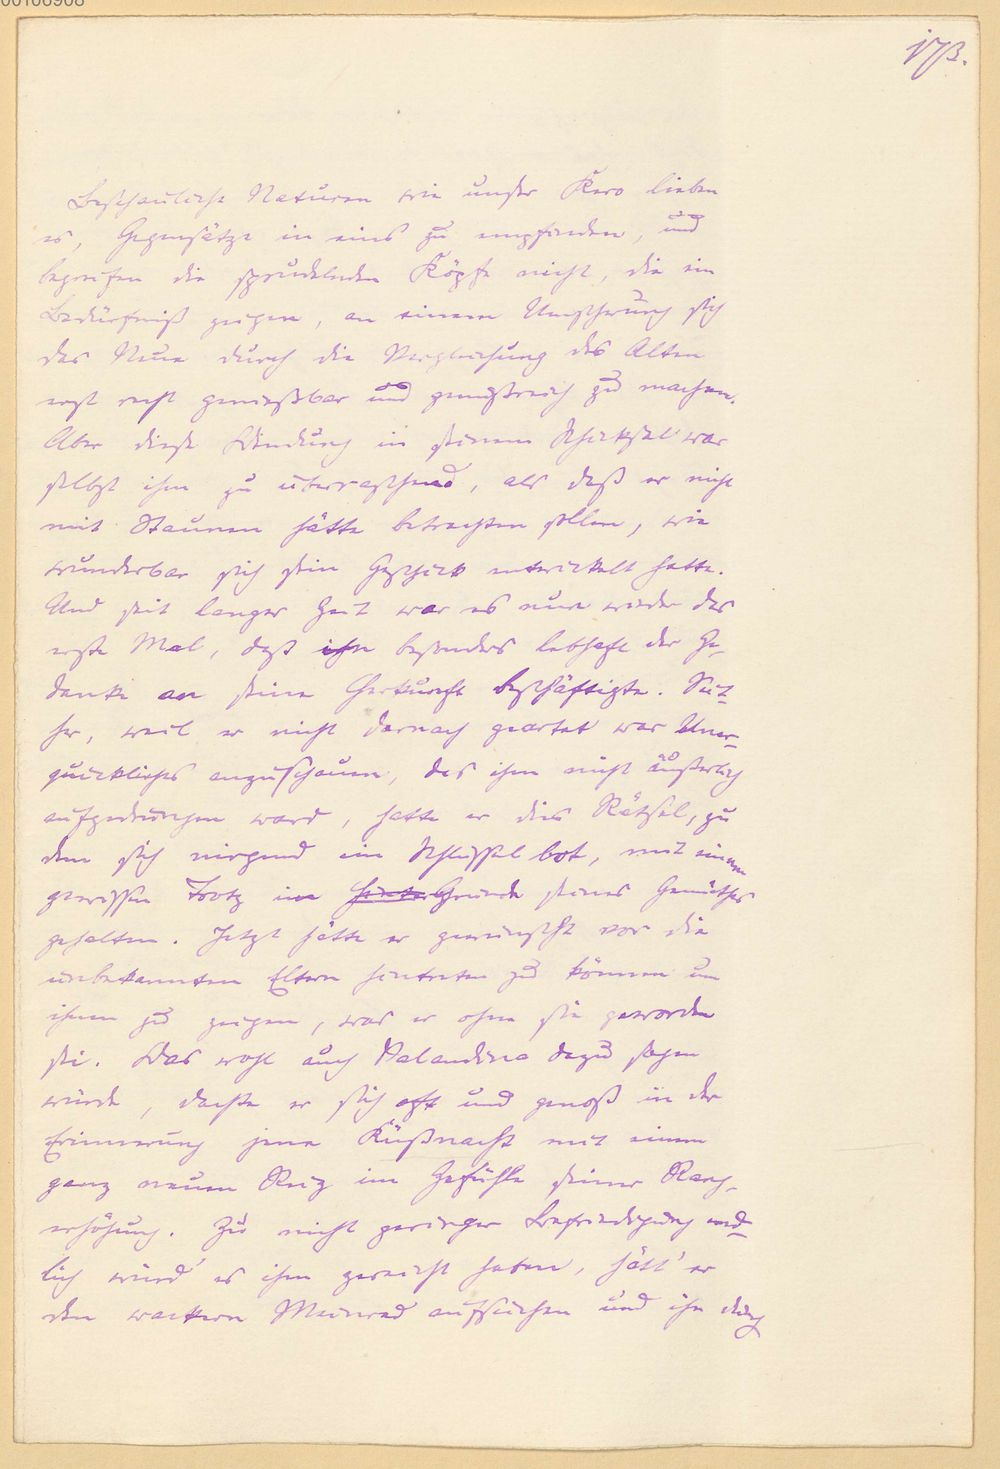 00106908
173.
Beschauliche Naturen wie unser Kero lieben
es, Gegensätze in eins zu empfinden, und
begreifen die sprudelnden Köpfe nicht, die ein
Bedürfniß zeigen, an einem Umschwung sich
das Neue durch die Vergleichung des Alten
erst recht genießbar und genußreich zu machen.
Aber diese Wendung in seinem Schicksal war
selbst ihm zu überraschend, als daß er nicht
mit Staunen hätte betrachten sollen, wie
wunderbar sich sein Geschick entwickelt hatte.
Und seit langer Zeit war es nun wieder das
erste Mal, daß ihn besonders lebhaft der Ge-
danke an seine Herkunft beschäftigte. Seit-
her, weil er nicht darnach geartet war Uner-
quickliches anzuschauen, das ihm nicht äußerlich
aufgedrungen ward, hatte er dies Rätsel, zu
dem sich nirgend ein Schlüssel bot, mit einem
gewissen Trotz im Hinter Grunde seines Gemüthes
gehalten. Jetzt hätte er gewünscht vor die
unbekannten Eltern hintreten zu können um
ihnen zu zeigen, was er ohne sie geworden
sei. Was wohl auch Valandina dazu sagen
würde, dachte er sich oft und genoß in der
Erinnerung jene Küßnacht mit einem
ganz neuen Reiz im Gefühle seiner Rang-
erhöhung. Zu nicht geringer Befriedigung end-
lich würd' es ihm gereicht haben, hätt' er
den wackern Meinrad aufsuchen und ihn durch